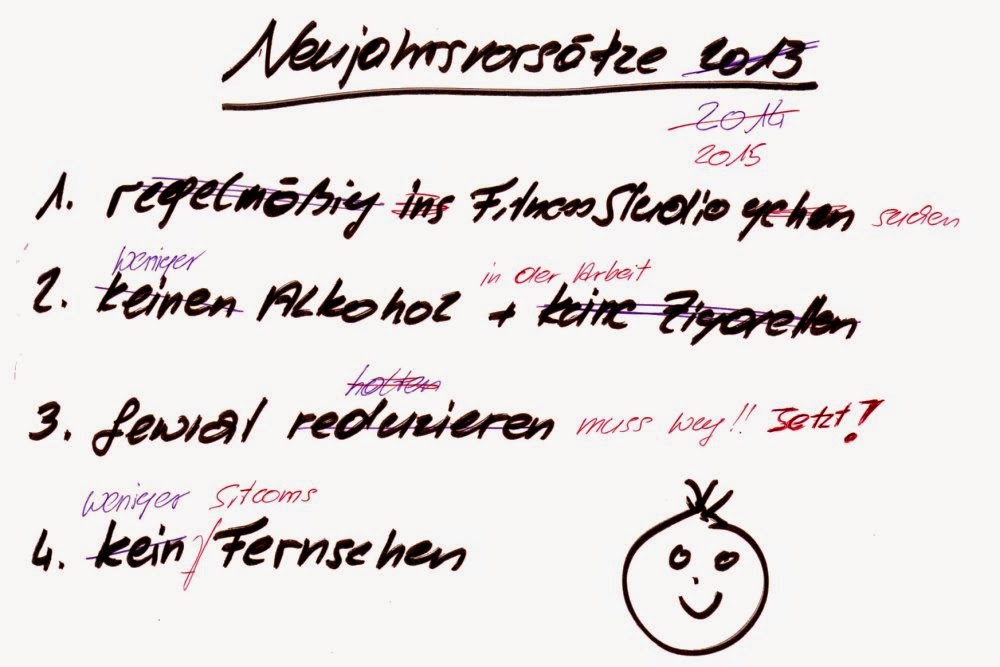 Neujahrsvorsätze 2013
2014
2015
1. regelmäßig ins Fitnessstudio gehen suchen
weniger in der Arbeit
2. keinen Alkohol + keine Zigaretten
halten
3. Gewicht reduzieren muss weg!! Jetzt!
weniger Sitcoms
4. kein Fernsehen